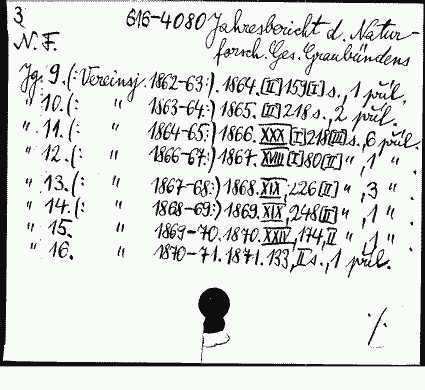 3
616-4080 Jahresbericht d. Natur-
N.F. forsch. Ges. Graubündens
Jg. 9.(: Vereinsj. 1862-63:). 1864. [II] 159 [I] s., 1 příl.
" 10.(: " 1863-64:). 1865. [II] 218 s., 2 příl.
" 11.(: " 1864-65:). 1866. XXX [I] 218 [III] s., 6 příl.
" 12.(: " 1866-67:). 1867. XVIII [I] 80 [II] ", 1 " .
" 13.(: " 1867-68:). 1868. XIX, 226 [II] ", 3 " .
" 14.(: " 1868-69:) 1869. XIX, 248 [II] ", 1 " .
" 15. " 1869-70. 1870. XXIV, 174, II ", 1 " .
" 16. " 1870-71. 1871. 133, II s., 1 příl.
./.